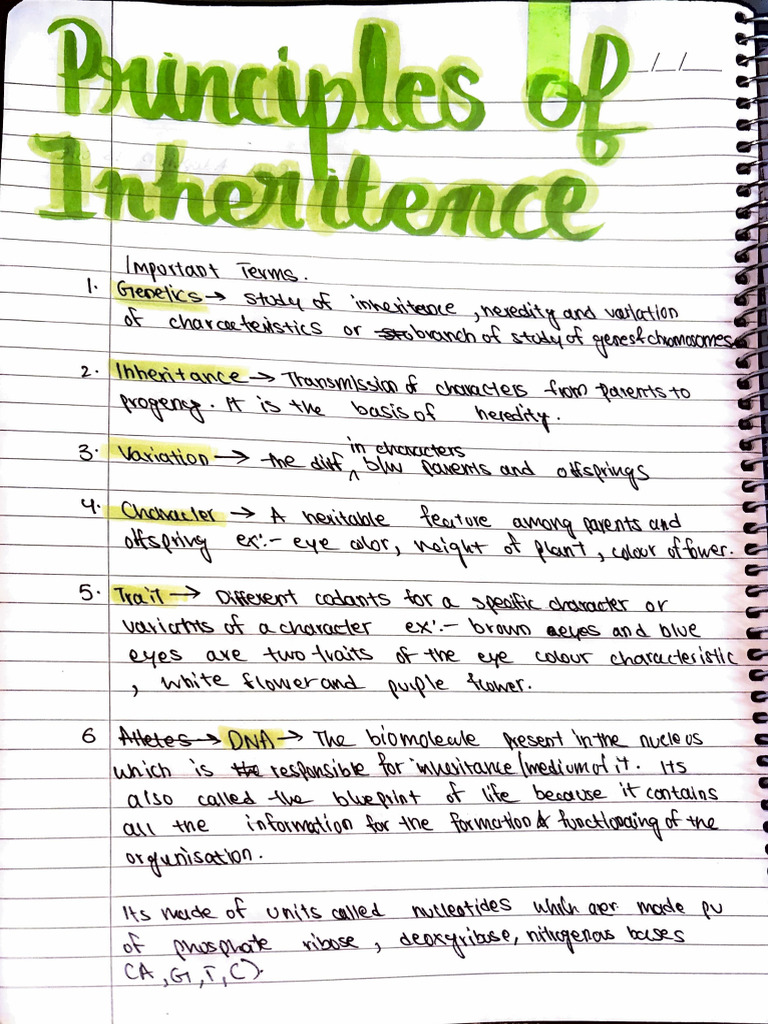 Principles of
/ /
Inheritence
Important Terms.
1. Genetics → study of inheritance, heredity and variation
of characteristics or branch of study of genes & chromosomes
2. Inheritance → Transmission of characters from parents to
progency. It is the basis of heredity.
in characters
3. Variation → the diff ^ b/w parents and offsprings
4. Character → A heritable feature among parents and
offspring ex:- eye color, height of plant, colour of flower.
5. Trait → Different for a specific character or
variants of a character ex:- brown eyes and blue
eyes are two traits of the eye colour characteristic
, white flower and purple flower.
6 Alleles → DNA → The biomolecule present in the nucleus
which is the responsible for inheritance/medium of it. Its
also called the blueprint of life because it contains
all the information for the formation & functioning of the
orgunisation.
Its made of units called nucleotides which aer made pu
of phosphate ribose, deoxyribose, nitrogenous bases
(A, G, T, C).